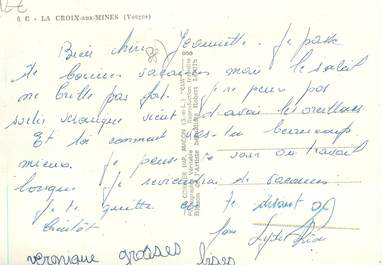 6 C - LA CROIX-aux-MINES (Vosges)
Bien chère Jeannette. Je passe
de bonnes vacances mais le soleil
ne brille pas fort. Je ne peux pas
sortir véronique vient d'avoir les oreillons
Et toi comment vas-tu beaucoup
mieux. Je pense te voir au travail
lorsque je reviendrai de vacances
Je te quitte en te disant à
bientôt
véronique grosses bises
COMBIER IMP. MACON